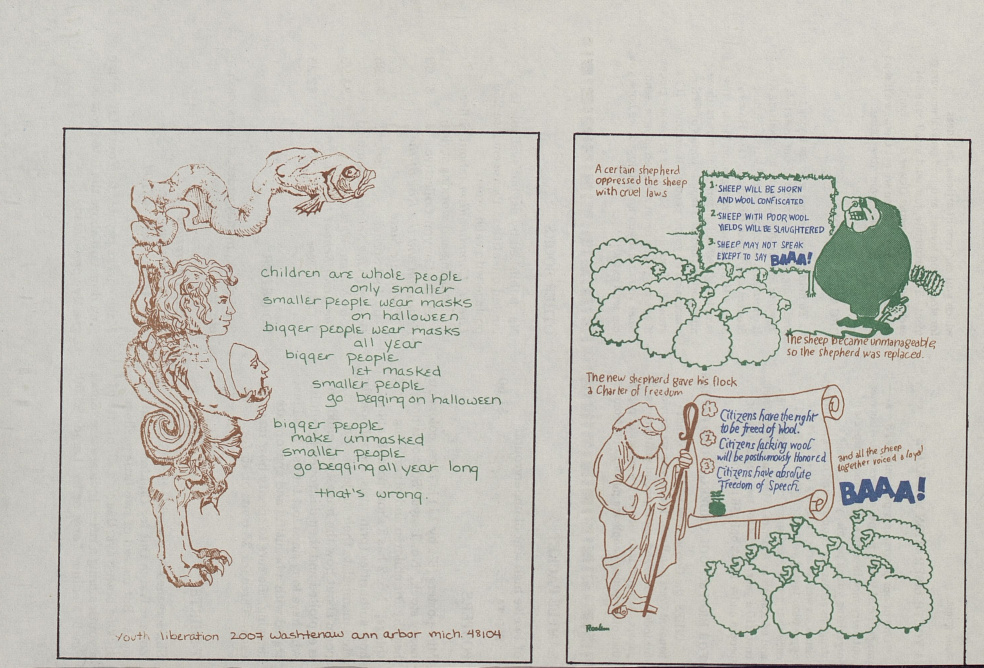 children are whole people
only smaller
smaller people wear masks
on halloween
bigger people wear masks
all year
bigger people
let masked
smaller people
go begging on halloween
bigger people
make unmasked
smaller people
go begging all year long
that's wrong.
youth liberation 2007 washtenaw ann arbor mich. 48104
A certain shepherd
oppressed the sheep
with cruel laws
1. SHEEP WILL BE SHORN
AND WOOL CONFISCATED
2. SHEEP WITH POOR WOOL
YIELDS WILL BE SLAUGHTERED
3. SHEEP MAY NOT SPEAK
EXCEPT TO SAY BAAA!
The sheep became unmanageable,
so the shepherd was replaced.
The new shepherd gave his flock
a Charter of Freedom
1 Citizens have the right
to be freed of Wool.
2 Citizens lacking wool
will be posthumously Honored
3 Citizens have absolute
Freedom of Speech
and all the sheep
together voiced a loyal
BAAA!